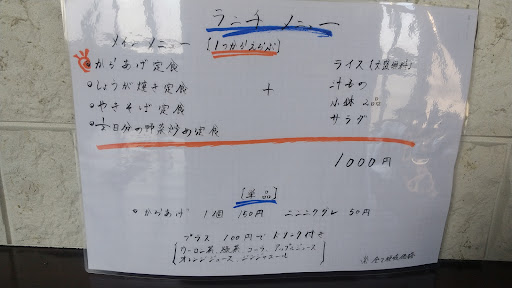 ランチ メニュー
メインメニュー [1つからえらぶ]
・からあげ定食 ライス(大盛無料)
・しょうが焼き定食 + 汁もの
・やきそば定食 小鉢2品
・1/2日分の野菜炒め定食 サラダ
1000円
[単品]
・からあげ 1個 150円 ニンニクダレ 50円
プラス 100円で ドリンク付き
[ウーロン茶 緑茶 コーラ アップルジュース
オレンジジュース ジンジャエール]
※全て税込価格